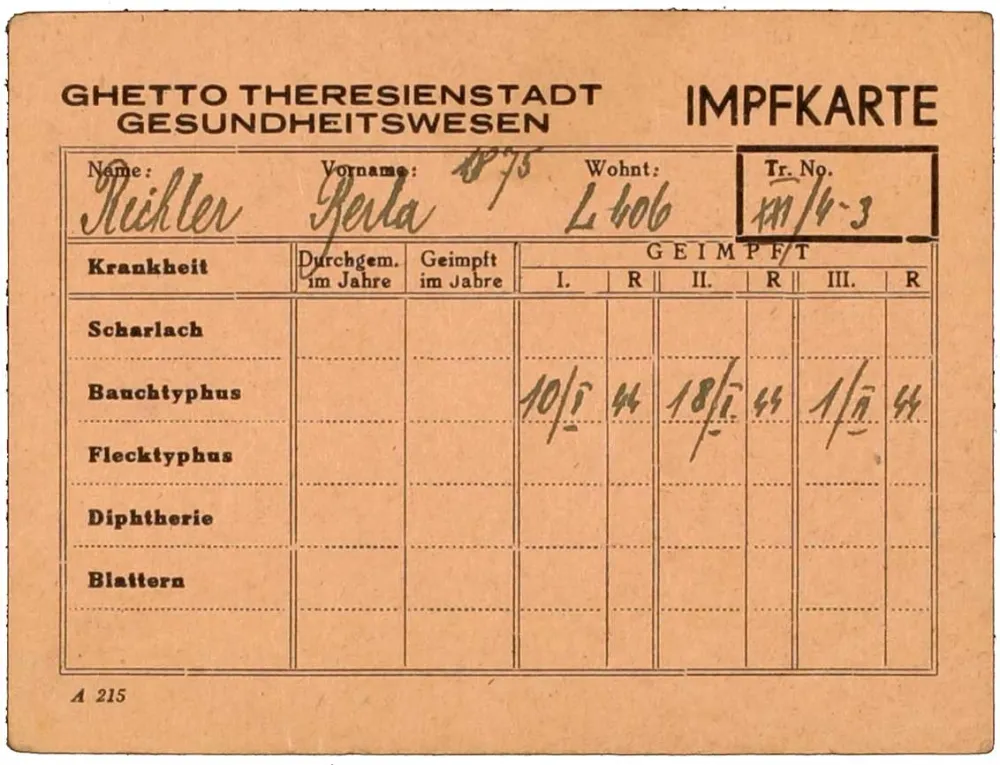 GHETTO THERESIENSTADT IMPFKARTE
GESUNDHEITSWESEN
Name: Vorname: 1875 Wohnt: Tr. No.
Richter Berta L 406 XIII/4-3
Krankheit Durchgem. im Jahre Geimpft im Jahre GEIMPFT
I. R II. R III. R
Scharlach
Bauchtyphus 10/I 44 18/I 44 1/II 44
Flecktyphus
Diphtherie
Blattern
A 215